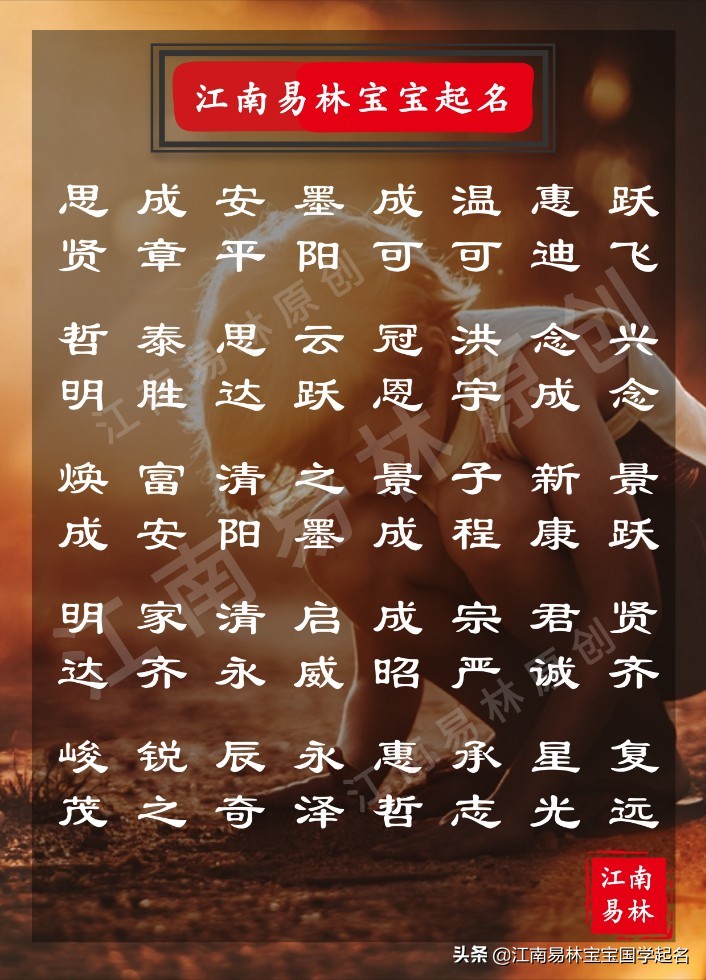 江南易林宝宝起名
思 成 安 墨 成 温 惠 跃
贤 章 平 阳 可 可 迪 飞
哲 泰 思 云 冠 洪 念 兴
明 胜 达 跃 恩 宇 成 念
焕 富 清 之 景 子 新 景
成 安 阳 墨 成 程 康 跃
明 家 清 启 成 宗 君 贤
达 齐 永 威 昭 严 诚 齐
峻 锐 辰 永 惠 承 星 复
茂 之 奇 泽 哲 志 光 远
江南易林原创
江南易林原创
江南易林原创
江南
易林
头条 @江南易林宝宝国学起名